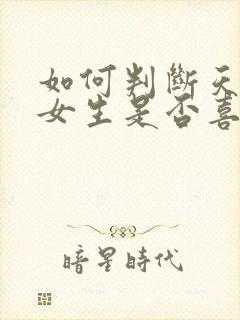 如何判斷天
女生是否喜
暗星時代